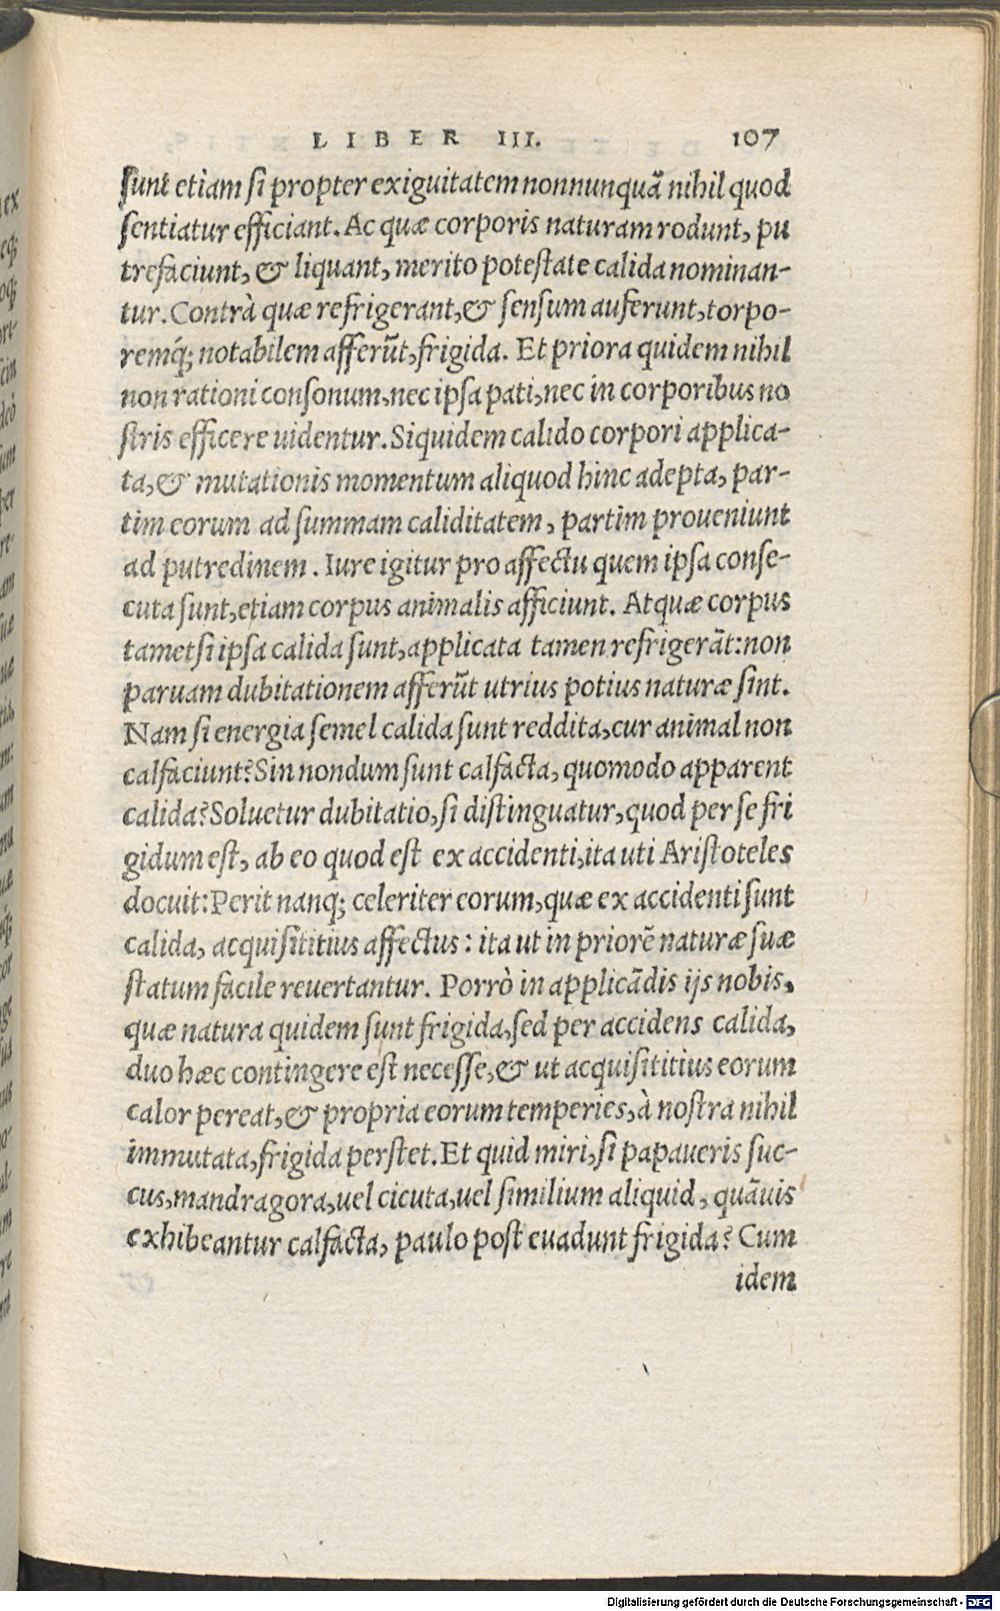 LIBER III. 107
sunt etiam si propter exiguitatem nonnunquã nihil quod
sentiatur efficiant. Ac quæ corporis naturam rodunt, pu
trefaciunt, & liquant, merito potestate calida nominan-
tur. Contrà quæ refrigerant, & sensum auferunt, torpo-
remq́; notabilem afferũt, frigida. Et priora quidem nihil
non rationi consonum, nec ipsa pati, nec in corporibus no
stris efficere uidentur. Siquidem calido corpori applica-
ta, & mutationis momentum aliquod hinc adepta, par-
tim eorum ad summam caliditatem, partim proueniunt
ad putredinem. Iure igitur pro affectu quem ipsa conse-
cuta sunt, etiam corpus animalis afficiunt. Atquæ corpus
tametsi ipsa calida sunt, applicata tamen refrigerãt: non
paruam dubitationem afferũt utrius potius naturæ sint.
Nam si energia semel calida sunt reddita, cur animal non
calfaciunt? Sin nondum sunt calfacta, quomodo apparent
calida? Soluetur dubitatio, si distinguatur, quod per se fri
gidum est, ab eo quod est ex accidenti, ita uti Aristoteles
docuit: Perit nanq; celeriter eorum, quæ ex accidenti sunt
calida, acquisititius affectus: ita ut in priorẽ naturæ suæ
statum facile reuertantur. Porrò in applicãdis ijs nobis,
quæ natura quidem sunt frigida, sed per accidens calida,
duo hæc contingere est necesse, & ut acquisititius eorum
calor pereat, & propria eorum temperies, à nostra nihil
immutata, frigida perstet. Et quid miri, si papaueris suc-
cus, mandragora, uel cicuta, uel similium aliquid, quãuis
exhibeantur calfacta, paulo post euadunt frigida? Cum
idem
Digitalisierung gefördert durch die Deutsche Forschungsgemeinschaft - DFG